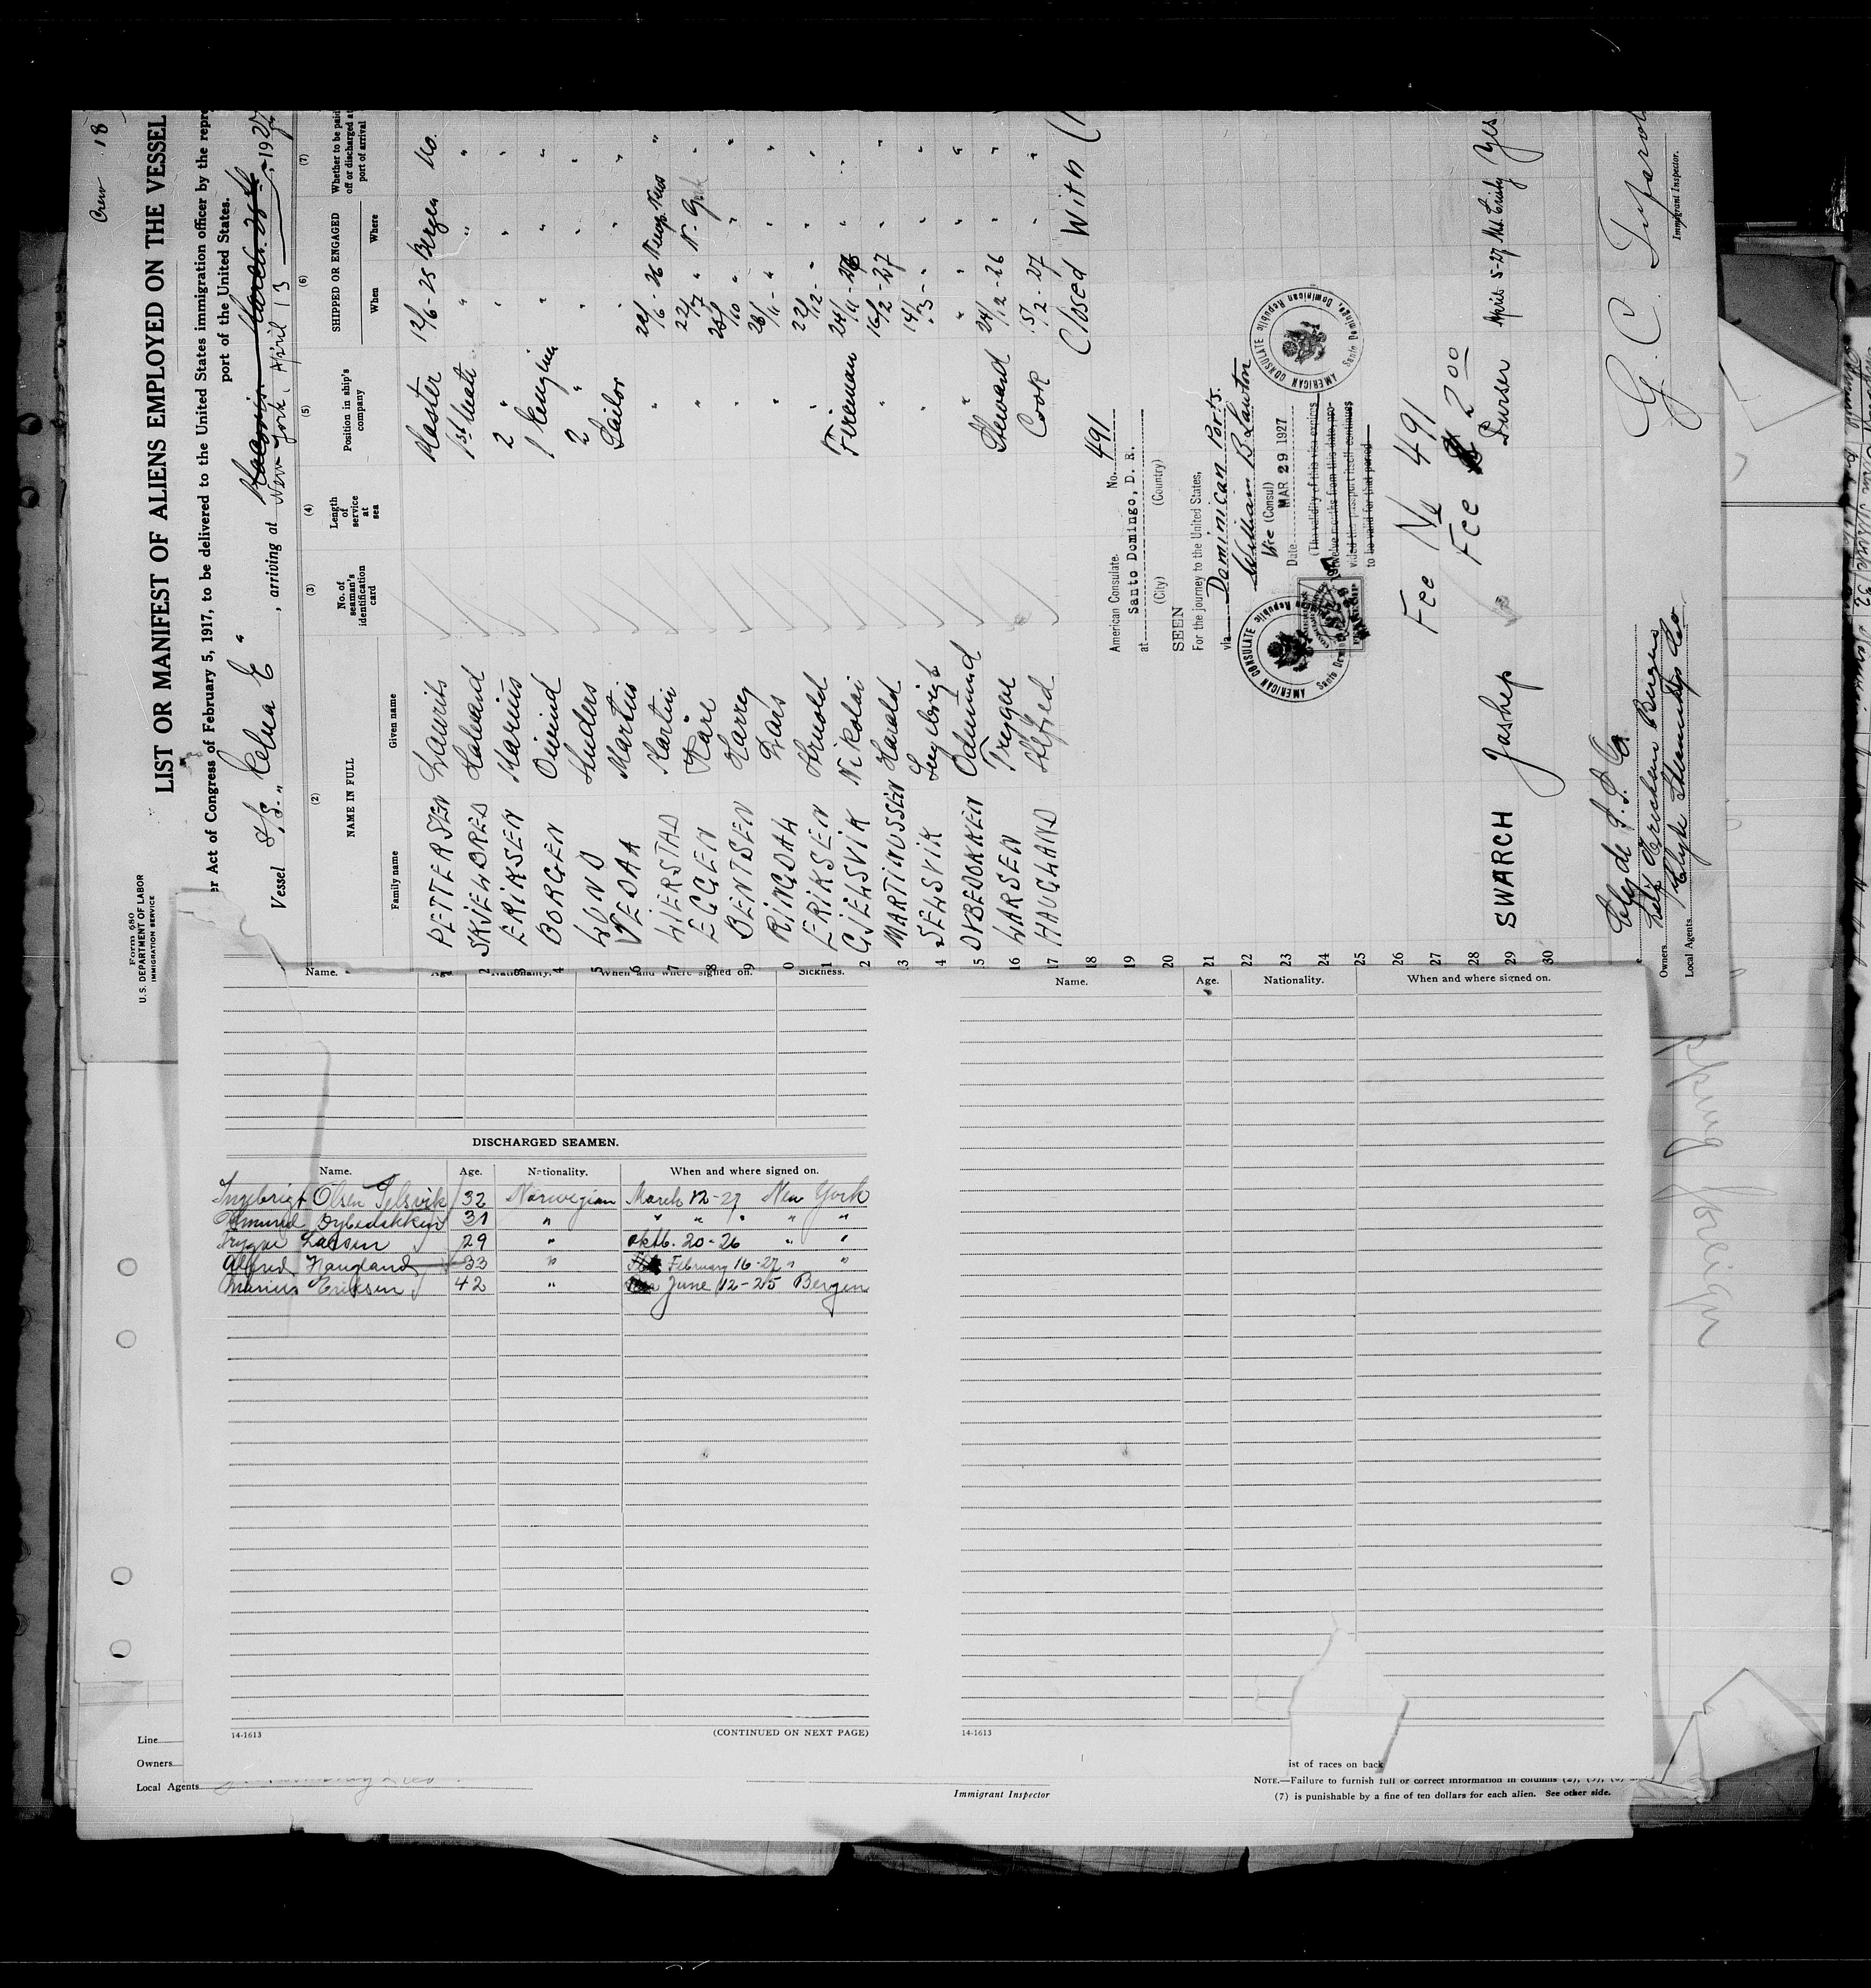 Crew 18
Form 680
U.S. DEPARTMENT OF LABOR
IMMIGRATION SERVICE
LIST OR MANIFEST OF ALIENS EMPLOYED ON THE VESSEL
er Act of Congress of February 5, 1917, to be delivered to the United States immigration officer by the repr
port of the United States.
Vessel , arriving at March 25th 1927
New York, April 13
(2) (3) (4) (5) (6) (7)
NAME IN FULL
Family name Given name
No. of seaman's identification card
Length of service at sea
Position in ship's company
SHIPPED OR ENGAGED
When Where
Whether to be paid off or discharged at port of arrival
1 PETTERSEN Laurits Master 12/6-25 Bergen No.
2 SKJELDRED Halvard 1st Mate " " "
3 ERIKSEN Marius 2 " " " "
4 BORGEN Oivind 1 Engine " " "
5 LUND Anders 2 " " " "
6 VEDAA Martin Sailor " " "
7 LIERSTAD Martin " 26 "
8 EGGEN Kåre " 22/7 " N. York "
9 BENTSEN Harry " "
0 RINGDAL Lars " "
ERIKSEN Arnold " 22/12 - " "
2 GJELSVIK Nikolai Fireman 24/11-26 " "
3 MARTINUSSEN Harald " 16/2-27 " "
4 JELSVIK Ingebrigt " 14/3 - " "
15 DYBEDOKKEN Odmund " " "
16 LARSEN Trygve Steward 24/12-26 " "
17 HAUGLAND Alfred Cook 15/2-27 " "
18 Closed With (1
19
20
21
22
23
24
25
26
27
28
29 SWARCH Jashep Purser April 5-27 Yes
30
American Consulate. No. 491
at Santo Domingo, D. R.
(City) (Country)
SEEN
For the journey to the United States,
via Dominican Ports.
William B. Lawton
Vice (Consul)
Date MAR 29 1927
(The validity of this visa expires
twelve months from this date, pro-
vided the passport itself continues
to be valid for that period
AMERICAN CONSULATE Santo Domingo, Dominican Republic
AMERICAN CONSULATE Santo Domingo, Dominican Republic
Fee No 491
Fee $ 2 00
Clyde S. S. Co
Owners Bergen
Local Agents Clyde Steamship Co
G. C.
Immigrant Inspector.
Name. Age. Nationality. When and where signed on. Sickness.
DISCHARGED SEAMEN.
Name. Age. Nationality. When and where signed on.
Ingebrigt Olsen Jelsvik 32 Norwegian March 12-27 New York
Odmund Dybedokken 31 " " " " " "
Trygve Larsen 29 " oktb. 20-26 " "
Alfred Haugland 33 " February 16-27 " "
Marius Eriksen 42 " June 12-25 Bergen
14-1613 (CONTINUED ON NEXT PAGE)
Name. Age. Nationality. When and where signed on.
14-1613
foreign
Line
Owners
Local Agents
Immigrant Inspector
ist of races on back
NOTE.—Failure to furnish full or correct information in columns (2), (5), (6)
(7) is punishable by a fine of ten dollars for each alien. See other side.